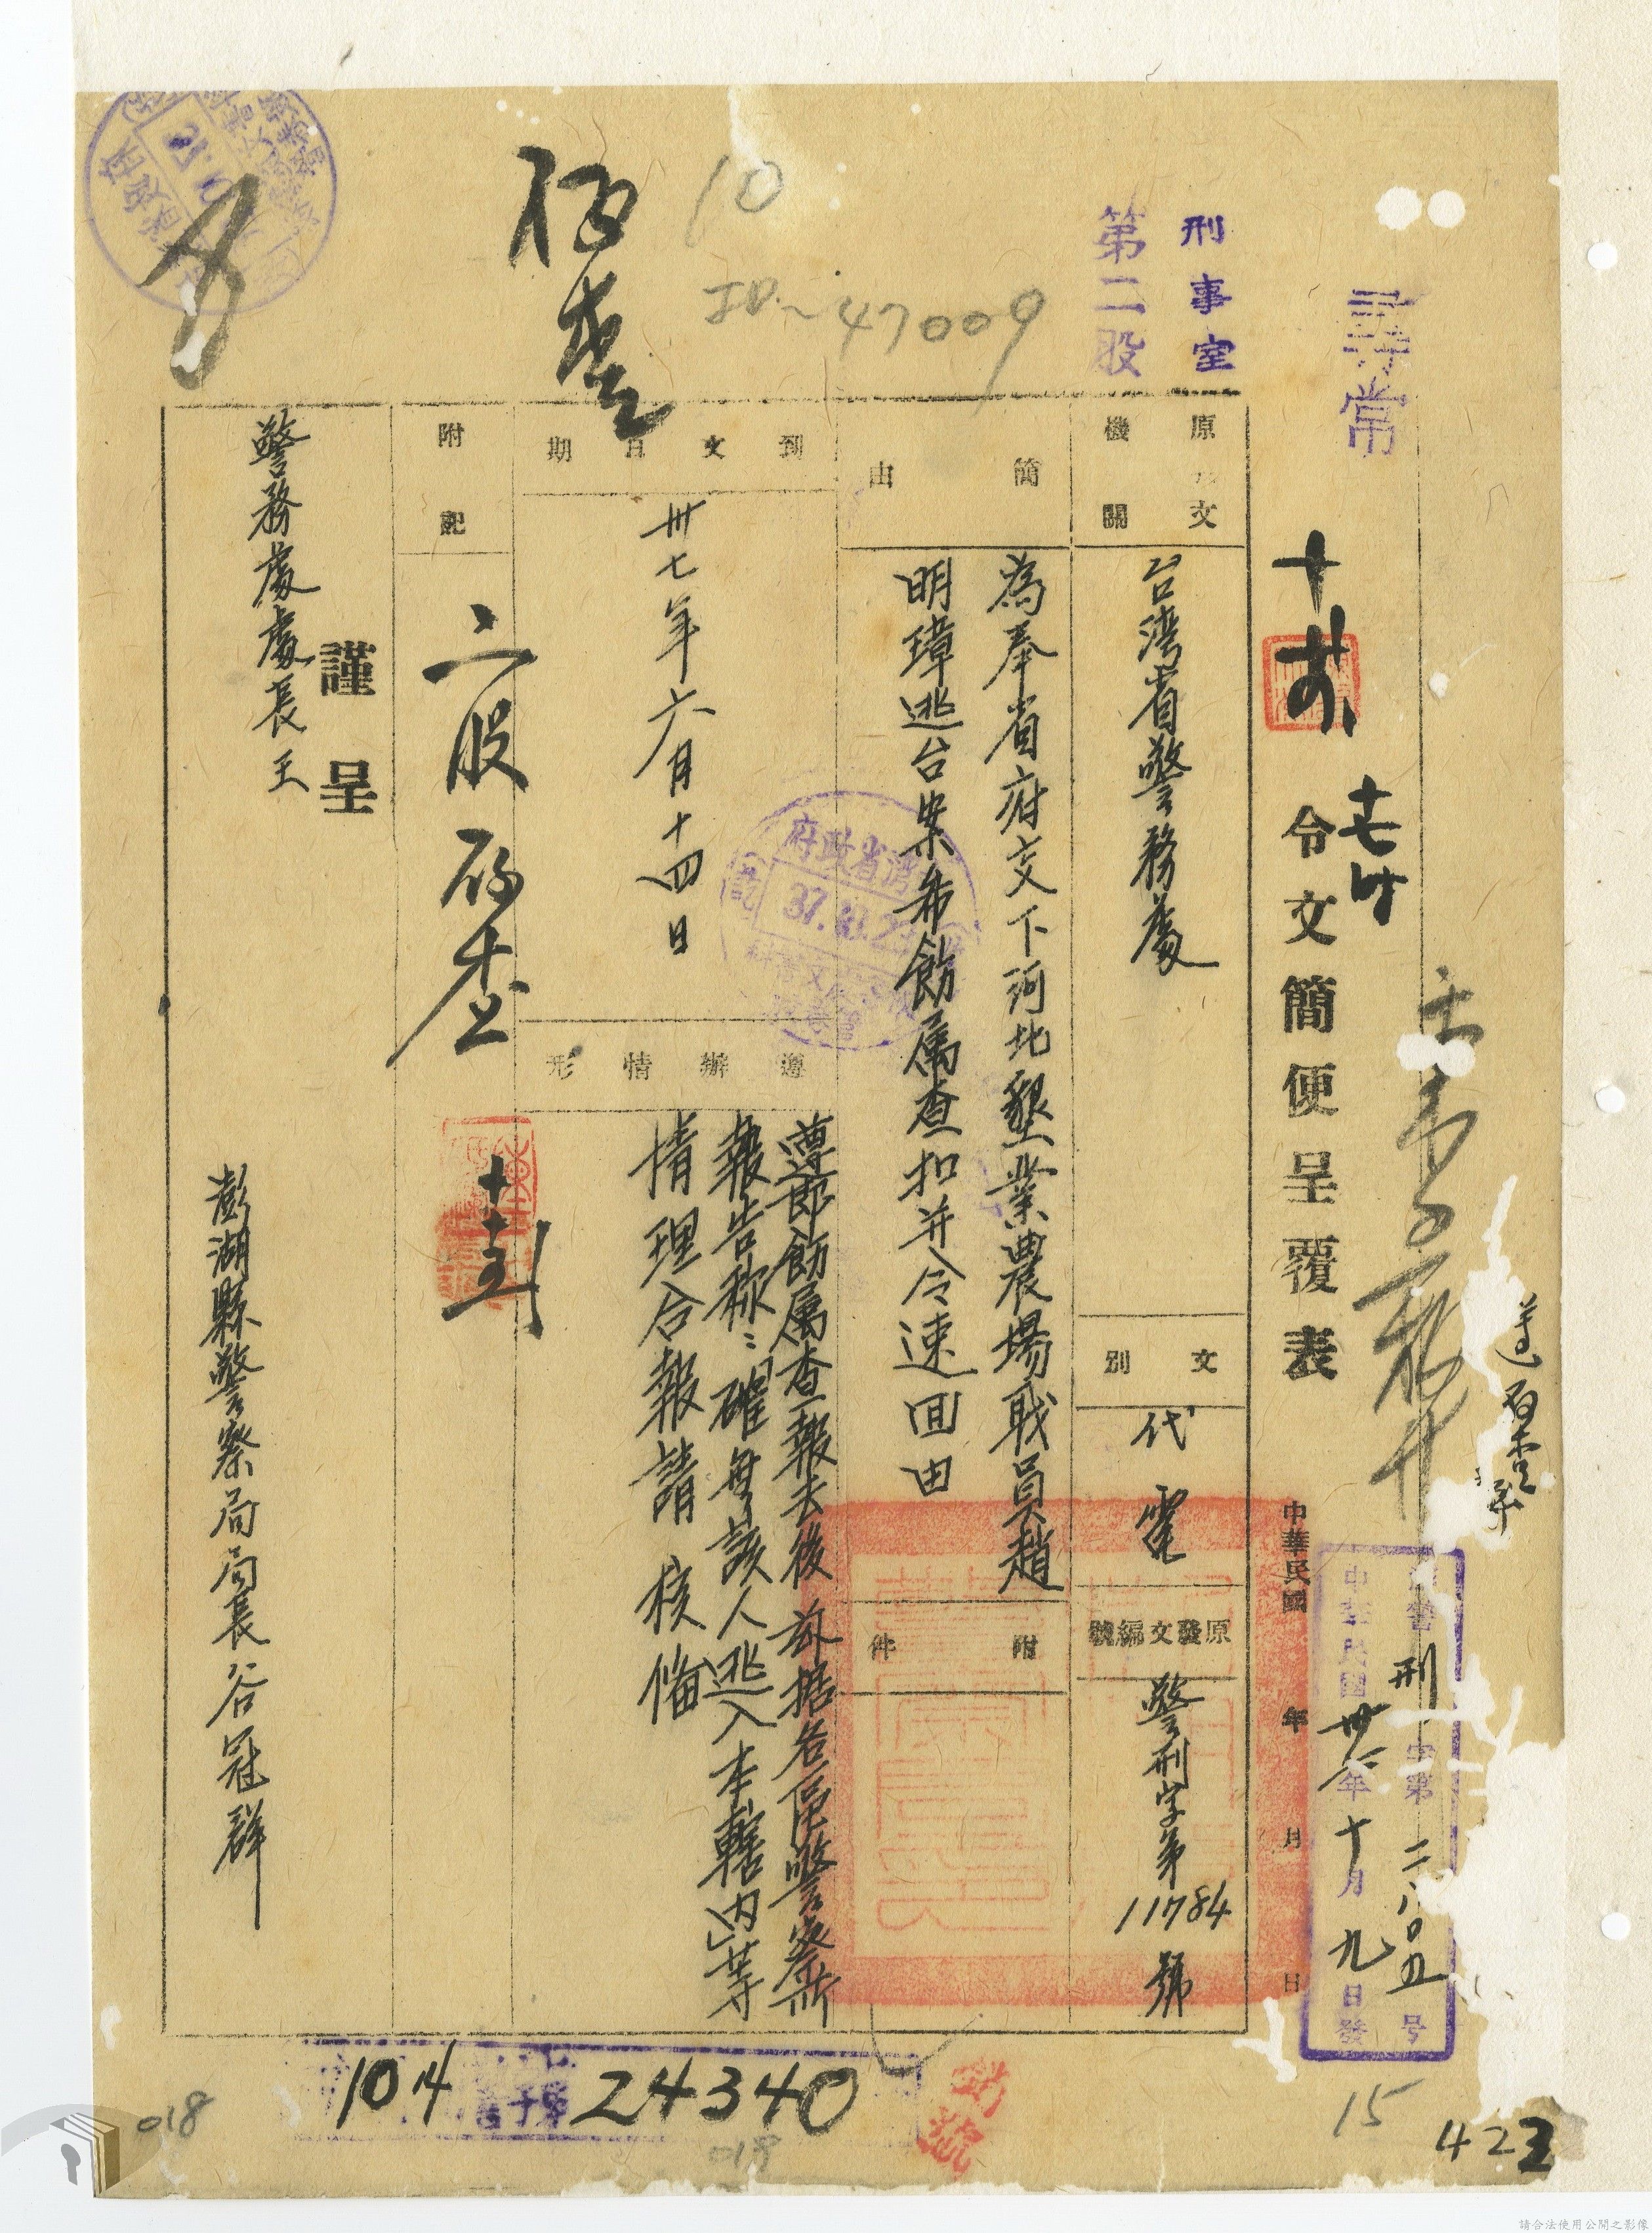 尋常
刑事室
第二股
10
ID~47009
令文簡便呈覆表
中華民國 年 月 日
刑字第二八〇五号
中華民國卅七年十月九日發
原發文機關
台湾省警務處
文別
代電
原發文編號
警刑字第11784號
簡由
為奉省府交下河北墾業農場职員趙
明璋逃台案希飭属查扣并令速回由
附件
到文日期
卅七年六月十四日
遵辦情形
遵即飭属查報去後茲据各區警察所
報告称:確無該人逃入本轄內等
情理合報請 核備
附記
二股
謹呈
警務處處長王
澎湖縣警察局局長谷冠群
104
字第
24340
018
019
15
422
請合法使用公開之影像